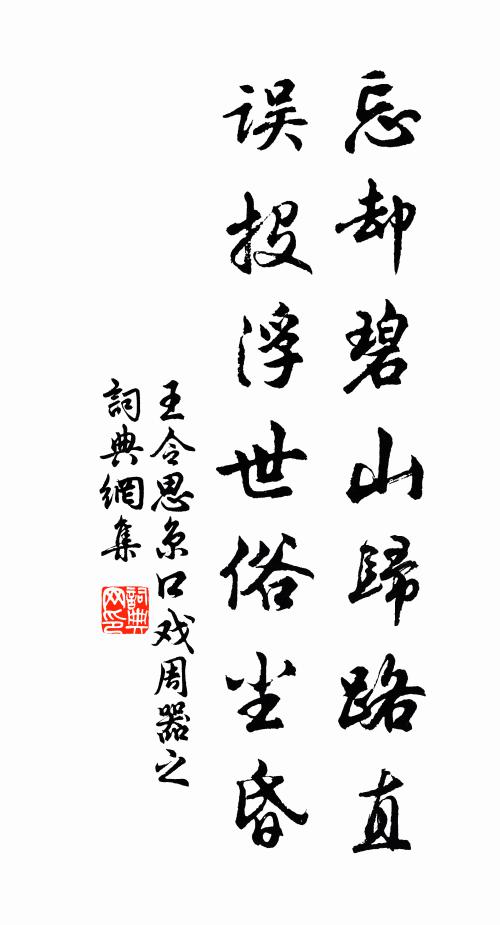 忘却碧山歸路直
误投浮世俗尘昏
王令思京口戏周器之
詞典網集
詞典网印